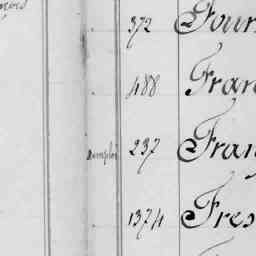 372 Four
488 Fran
237 Fran
1374 Fres